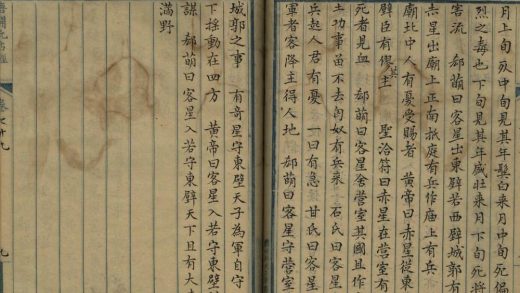 月上旬死中旬見其年鬓白来月中旬死偏
烈之毒也下旬見其年盛壮来月下旬死将
害流 郄萌曰客星出東壁若西壁城郭有
赤星出廟上正南抵庭有兵作庙上有兵
廟北中人有憂受賜者 黄帝曰赤星從東
壁臣有主 聖洽符曰赤星在營室有
死者見血 郄萌曰客星舍營室其國且作
土功事菑不去匈奴有兵来 石氏曰客星
兵起人君有憂 一曰有急 甘氏曰客星
軍者客降主得人地 郄萌曰客星守營室
城郭之事 有奇星守東壁天子為軍自守
下摇動在四方 黄帝曰客星入若守東壁
謀 郄萌曰客星入若守東壁天下且有大
满野
九